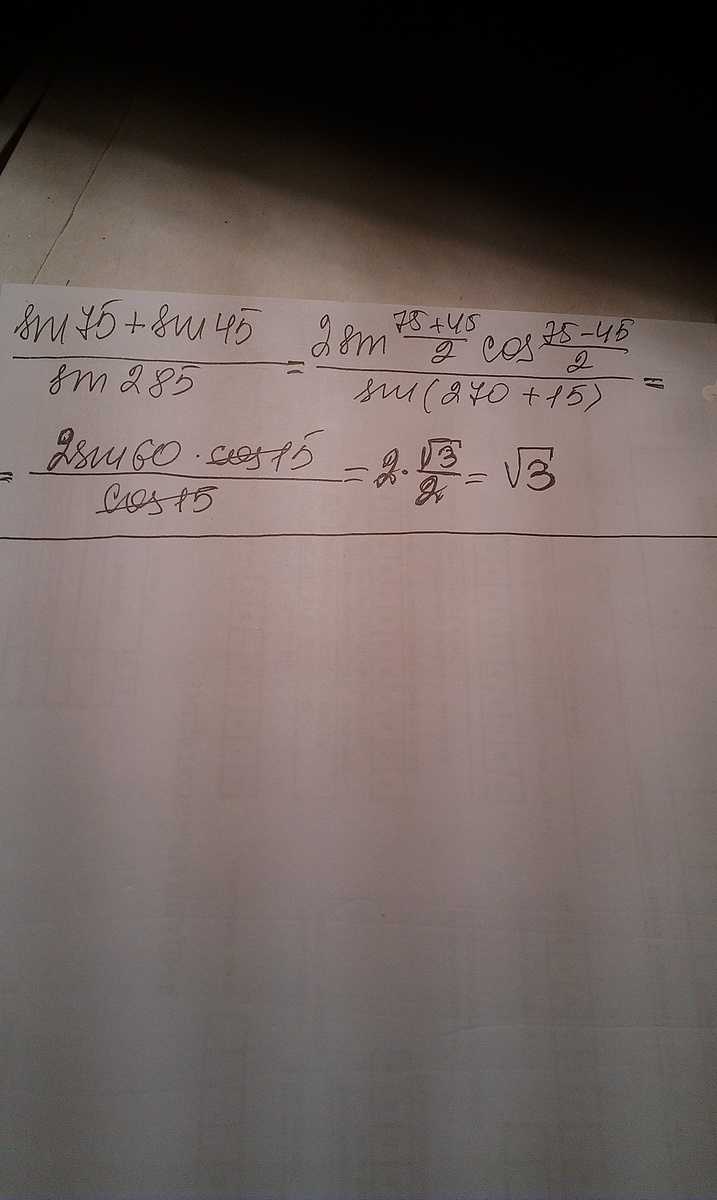 (sin 75 + sin 45) / (sin 285) = (2 sin (75+45)/2 cos (75-45)/2) / (sin(270+15)) =
= (2sin60 · cos15) / (cos15) = 2 · √3/2 = √3